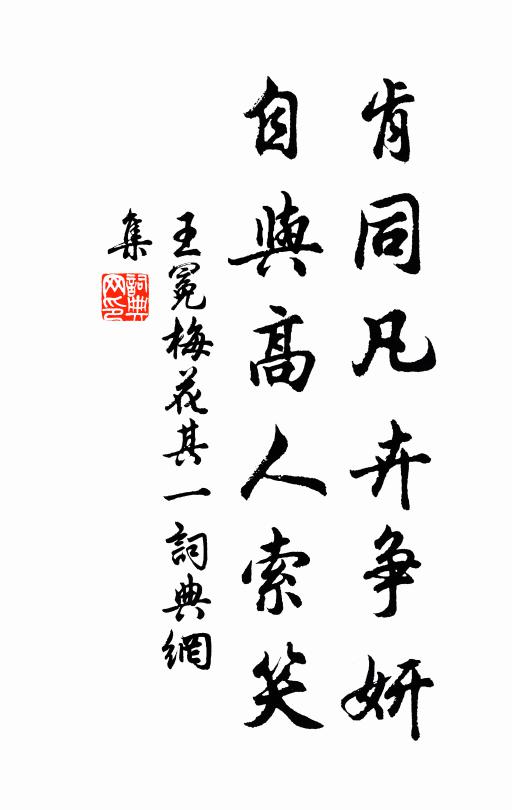 肯同凡卉争妍
自與高人索笑
王冕梅花其一詞典網
集
詞典
网印